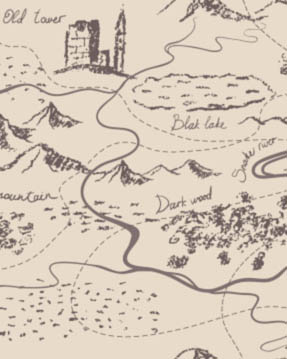 Old tower
Blak lake
Snake river
mountain
Dark wood